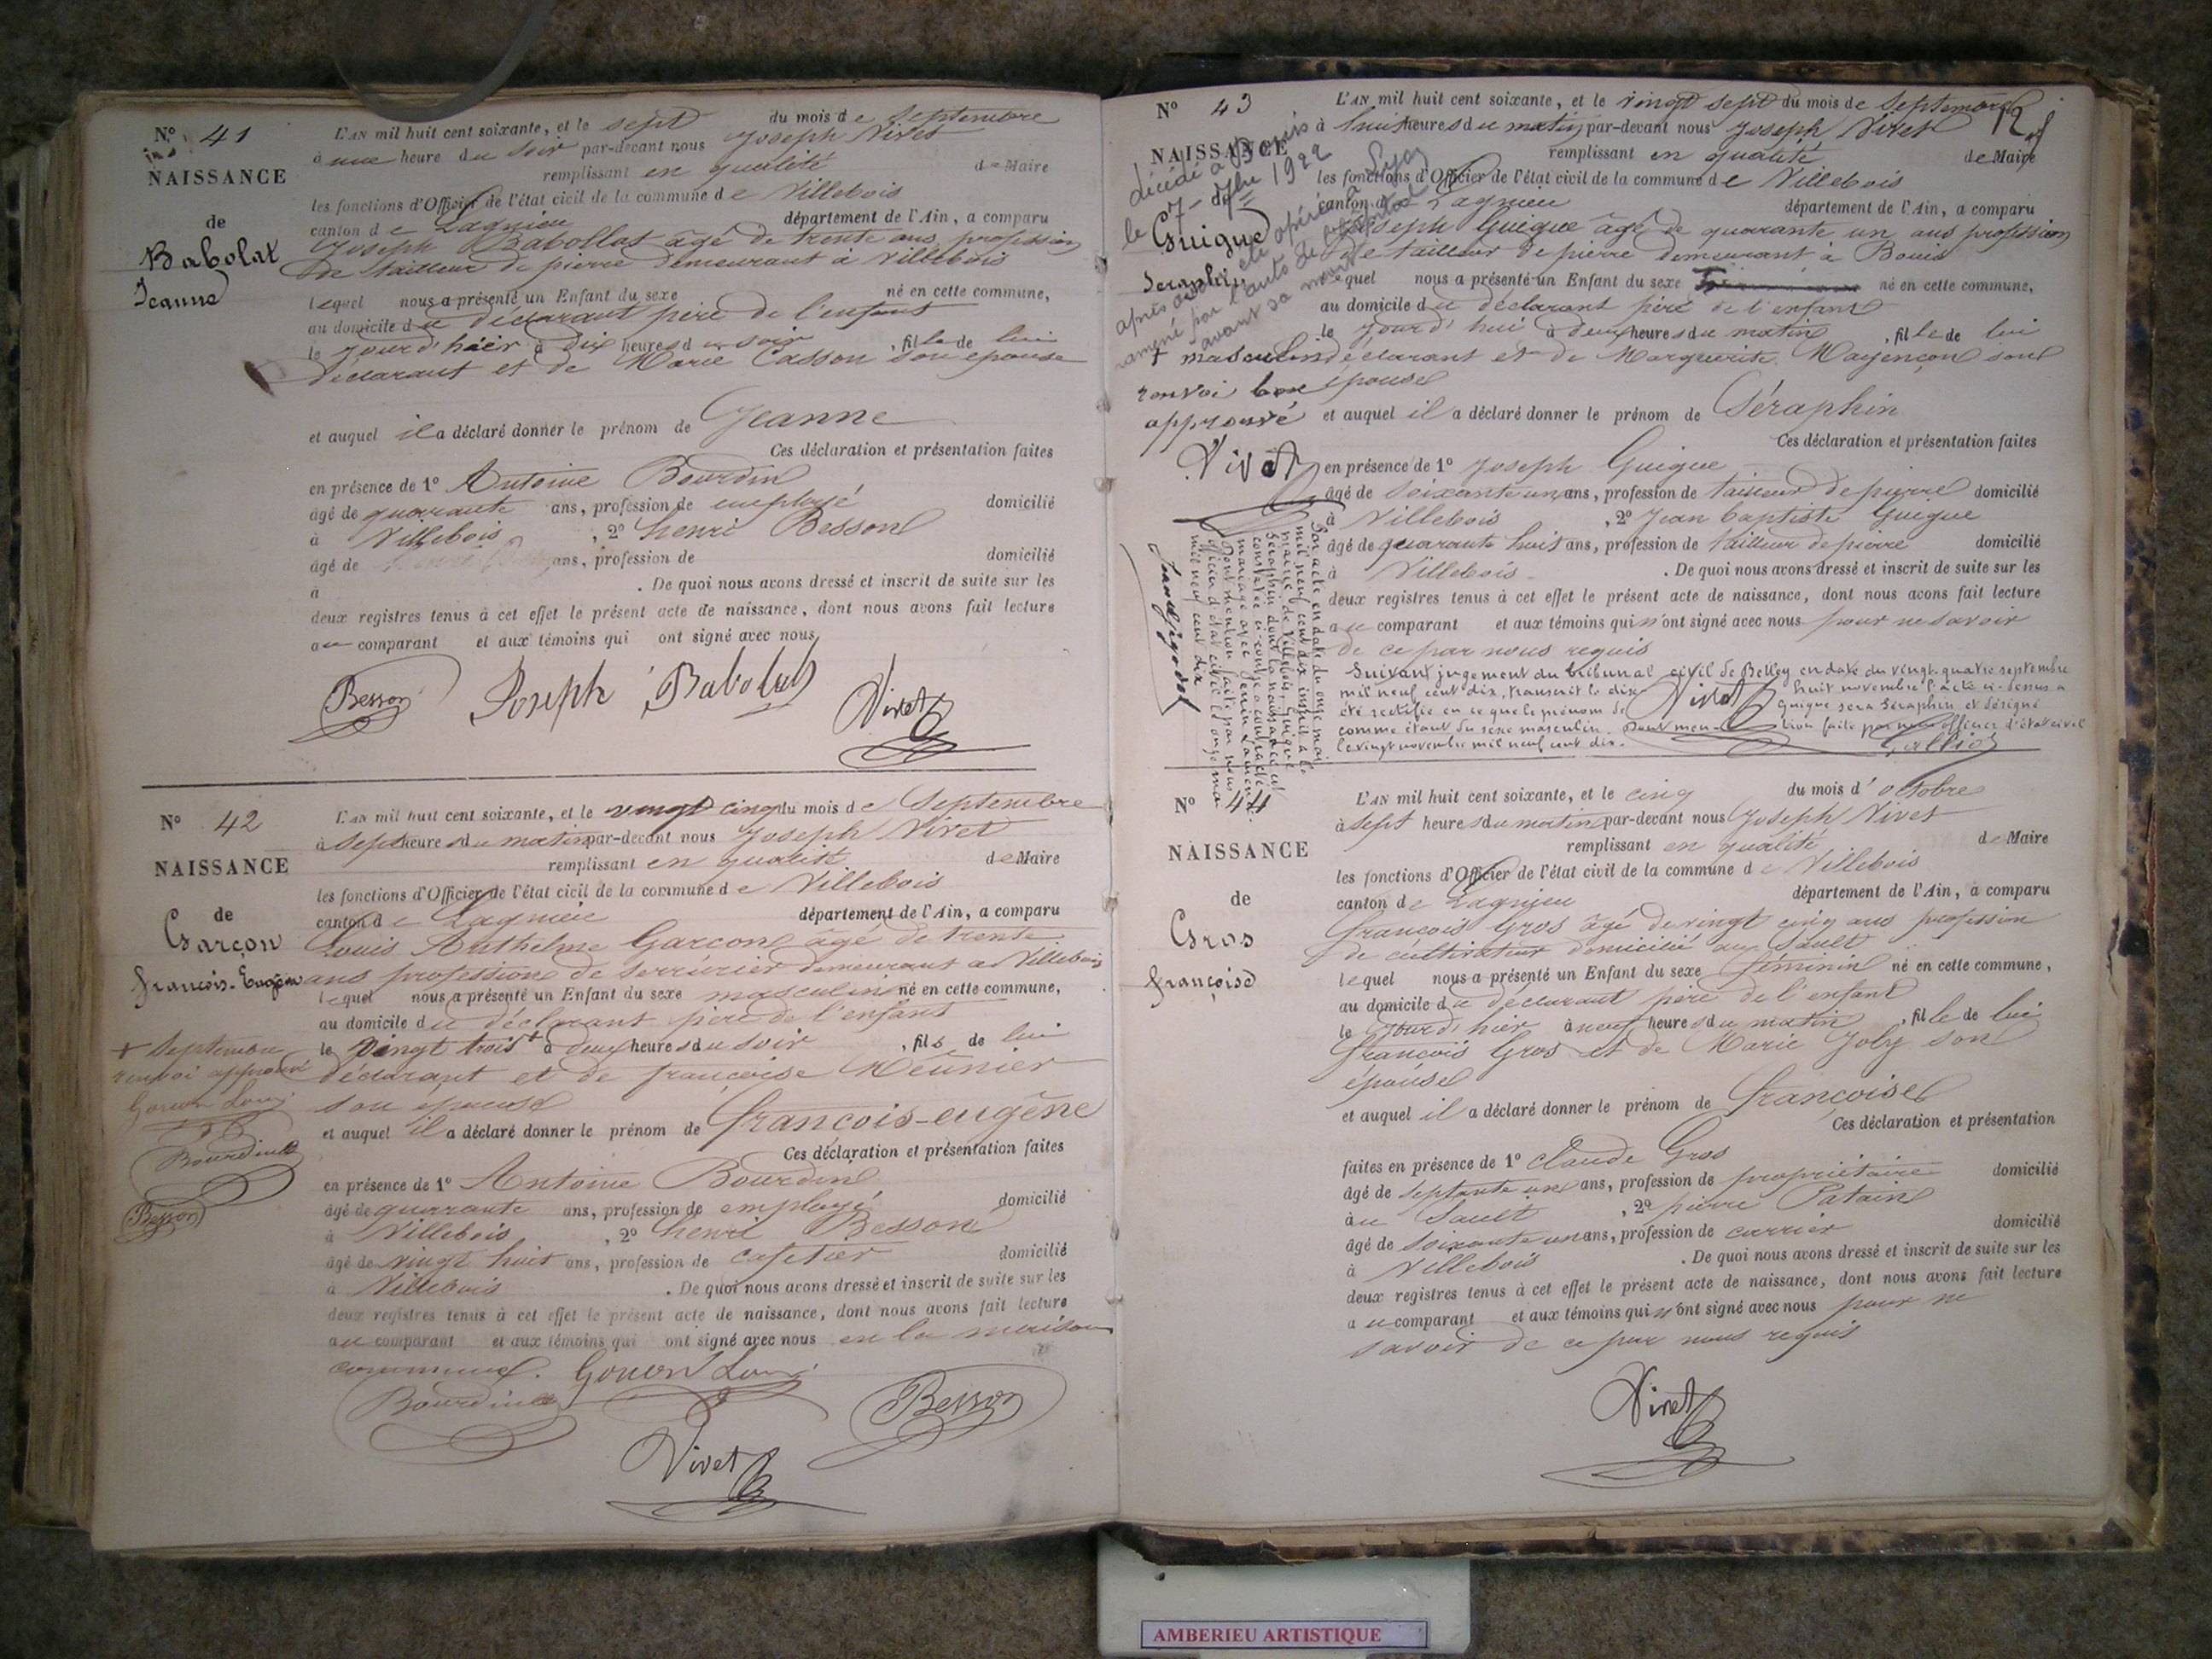 N° 41
NAISSANCE
de
Babolat
Jeanne
L'AN mil huit cent soixante, et le sept du mois de Septembre
à une heure du soir par-devant nous Joseph Vivet
remplissant en qualité de Maire
les fonctions d'Officier de l'état civil de la commune de Villebois
canton de Lagnieu département de l'Ain, a comparu
Joseph Babollat âgé de trente ans profession
de tailleur de pierre demeurant à Villebois
lequel nous a présenté un Enfant du sexe né en cette commune,
au domicile du déclarant père de l'enfant
le jour d'hier à dix heures du soir, fille de lui
déclarant et de Marie Casson son épouse
et auquel il a déclaré donner le prénom de Jeanne
Ces déclaration et présentation faites
en présence de 1° Antoine Bourdin
âgé de quarante ans, profession de employé domicilié
à Villebois, 2° henri Besson
âgé de ans, profession de domicilié
à . De quoi nous avons dressé et inscrit de suite sur les
deux registres tenus à cet effet le présent acte de naissance, dont nous avons fait lecture
au comparant et aux témoins qui ont signé avec nous
Besson Joseph Babolat Vivet
N° 42
NAISSANCE
de
Garçon
françois-Eugène
L'AN mil huit cent soixante, et le vingt cinq du mois de Septembre
à sept heures du matin par-devant nous Joseph Vivet
remplissant en qualité de Maire
les fonctions d'Officier de l'état civil de la commune de Villebois
canton de Lagnieu département de l'Ain, a comparu
Louis Anthelme Garçon âgé de trente
ans profession de serrurier demeurant à Villebois
lequel nous a présenté un Enfant du sexe masculin né en cette commune,
au domicile du déclarant père de l'enfant
le vingt trois + à deux heures du soir, fils de lui
déclarant et de françoise Meûnier
son épouse
+ septembre
renvoi approuvé
Bourdin
Besson
et auquel il a déclaré donner le prénom de françois-eugène
Ces déclaration et présentation faites
en présence de 1° Antoine Bourdin
âgé de quarante ans, profession de employé domicilié
à Villebois, 2° henri Besson
âgé de vingt huit ans, profession de cafetier domicilié
à Villebois . De quoi nous avons dressé et inscrit de suite sur les
deux registres tenus à cet effet le présent acte de naissance, dont nous avons fait lecture
au comparant et aux témoins qui ont signé avec nous en la maison
commune.
Bourdin Besson
Vivet
N° 43
NAISSANCE
Guigue
Seraphin
décédé à Bouis
le 7 - 7bre 1922
L'AN mil huit cent soixante, et le vingt sept du mois de Septembre
à huit heures du matin par-devant nous Joseph Vivet
remplissant en qualité de Maire
les fonctions d'Officier de l'état civil de la commune de Villebois
canton de Lagnieu département de l'Ain, a comparu
Joseph Guigue âgé de quarante un ans profession
de tailleur de pierre demeurant à Bouis
lequel nous a présenté un Enfant du sexe né en cette commune,
au domicile du déclarant père de l'enfant
le jour d'hui à deux heures du matin, fille de lui
+ masculin déclarant et de Marguerite Mayençon son
renvoi bon épouse
approuvé et auquel il a déclaré donner le prénom de Séraphin
Ces déclaration et présentation faites
Vivet
en présence de 1° Joseph Guigue
âgé de soixante un ans, profession de tailleur de pierre domicilié
à Villebois, 2° Jean baptiste Guigue
âgé de quarante huit ans, profession de tailleur de pierre domicilié
à Villebois . De quoi nous avons dressé et inscrit de suite sur les
deux registres tenus à cet effet le présent acte de naissance, dont nous avons fait lecture
au comparant et aux témoins qui n'ont signé avec nous pour ne savoir
de ce par nous requis
Vivet
Suivant jugement du tribunal civil de Belley en date du vingt-quatre septembre
mil neuf cent dix, transcrit le dix huit novembre l'acte ci-dessus a
été rectifié en ce que le prénom de Guigue sera Séraphin et désigné
comme étant du sexe masculin. Dont mention faite par nous officier d'état civil
le vingt novembre mil neuf cent dix.
Par acte en date du onze mai
mil neuf cent dix inscrit à la
mairie de Villebois, Guigue
Séraphin dont la naissance est
constatée ci-contre a contracté
mariage avec
Dont mention faite par nous
officier d'état civil le onze mai
mil neuf cent dix
N° 44
NAISSANCE
de
Gros
françoise
L'AN mil huit cent soixante, et le cinq du mois d'octobre
à sept heures du matin par-devant nous Joseph Vivet
remplissant en qualité de Maire
les fonctions d'Officier de l'état civil de la commune de Villebois
canton de Lagnieu département de l'Ain, a comparu
françois Gros âgé de vingt cinq ans profession
de cultivateur domicilié au Sault
lequel nous a présenté un Enfant du sexe féminin né en cette commune,
au domicile du déclarant père de l'enfant
le jour d'hier à neuf heures du matin, fille de lui
françois Gros et de Marie Joly son
épouse
et auquel il a déclaré donner le prénom de françoise
Ces déclaration et présentation
faites en présence de 1° Claude Gros
âgé de septante un ans, profession de propriétaire domicilié
au Sault, 2° pierre Patain
âgé de soixante un ans, profession de carrier domicilié
à Villebois . De quoi nous avons dressé et inscrit de suite sur les
deux registres tenus à cet effet le présent acte de naissance, dont nous avons fait lecture
au comparant et aux témoins qui n'ont signé avec nous pour ne
savoir de ce par nous requis
Vivet
AMBERIEU ARTISTIQUE